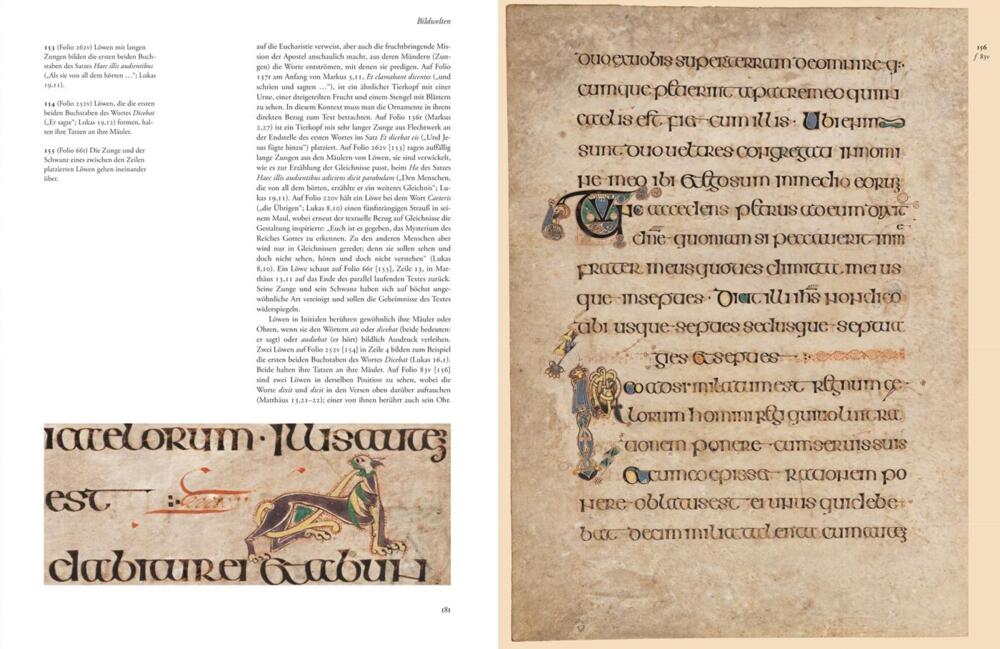 Bildwelten
153 (Folio 262v) Löwen mit langen
Zungen bilden die ersten beiden Buch-
staben des Satzes Haec illis audientibus
(„Als sie von all dem hörten …“; Lukas
19,11).
154 (Folio 252v) Löwen, die die ersten
beiden Buchstaben des Wortes Dicebat
(„Er sagte“; Lukas 19,12) formen, hal-
ten ihre Tatzen an ihre Mäuler.
155 (Folio 66r) Die Zunge und der
Schwanz eines zwischen den Zeilen
platzierten Löwen gehen ineinander
über.
auf die Eucharistie verweist, aber auch die fruchtbringende Mis-
sion der Apostel anschaulich macht, aus deren Mündern (Zun-
gen) die Worte entströmen, mit denen sie predigen. Auf Folio
137r am Anfang von Markus 3,11, Et clamabant dicentes („und
schrien und sagten …“), ist ein ähnlicher Tierkopf mit einer
Urne, einer dreigeteilten Frucht und einem Stengel mit Blättern
zu sehen. In diesem Kontext muss man die Ornamente in ihrem
direkten Bezug zum Text betrachten. Auf Folio 136r (Markus
2,27) ist ein Tierkopf mit sehr langer Zunge aus Flechtwerk an
der Endstelle des ersten Wortes im Satz Et dicebat eis („Und Je-
sus fügte hinzu“) platziert. Auf Folio 262v [153] ragen auffällig
lange Zungen aus den Mäulern von Löwen, sie sind verwickelt,
wie es zur Erzählung der Gleichnisse passt, beim Ha des Satzes
Haec illis audientibus adiciens dicit parabulam („Den Menschen,
die von all dem hörten, erzählte er ein weiteres Gleichnis“; Lu-
kas 19,11). Auf Folio 220v hält ein Löwe bei dem Wort Caeteris
(„die Übrigen“; Lukas 8,10) einen fünfsträngigen Strauß in sei-
nem Maul, wobei erneut der textuelle Bezug auf Gleichnisse die
Gestaltung inspirierte: „Euch ist es gegeben, das Mysterium des
Reiches Gottes zu erkennen. Zu den anderen Menschen aber
wird nur in Gleichnissen geredet; denn sie sollen sehen und
doch nicht sehen, hören und doch nicht verstehen“ (Lukas
8,10). Ein Löwe schaut auf Folio 66r [155], Zeile 13, in Mat-
thäus 13,11 auf das Ende des parallel laufenden Textes zurück.
Seine Zunge und sein Schwanz haben sich auf höchst unge-
wöhnliche Art vereinigt und sollen die Geheimnisse des Textes
widerspiegeln.
Löwen in Initialen berühren gewöhnlich ihre Mäuler oder
Ohren, wenn sie den Wörtern ait oder dicebat (beide bedeuten:
er sagt) oder audiebat (er hört) bildlich Ausdruck verleihen.
Zwei Löwen auf Folio 252v [154] in Zeile 4 bilden zum Beispiel
die ersten beiden Buchstaben des Wortes Dicebat (Lukas 16,1).
Beide halten ihre Tatzen an ihre Mäuler. Auf Folio 83v [156]
sind zwei Löwen in derselben Position zu sehen, wobei die
Worte dixit und dicit in den Versen oben darüber auftauchen
(Matthäus 13,21–22); einer von ihnen berührt auch sein Ohr.
caelorum · Illis aute
est
dabitur ei & abun
181
156
f 83v
duo ex uobis super terram de omni re q:
cumque a patre meo qui in
caelis est cum illis · Ubi enim
sunt duo uel tres congregati in nomi
ne meo ibi & ego sum in medio eorum
Tunc accedens petrus ad eum dixit
dne quoniam si peccauerit in me
frater meus quoties dimittam
que in septies · Dicit illi ihs non dico
tibi usque septies sed usque septua
gies & septies
adsimilatum est regnum ce
lorum homini regi qui uoluit ra
tionem ponere cum seruis suis
cum coepisset rationem po
nere oblatus est ei unus qui debe
bat decim milia talenta cum